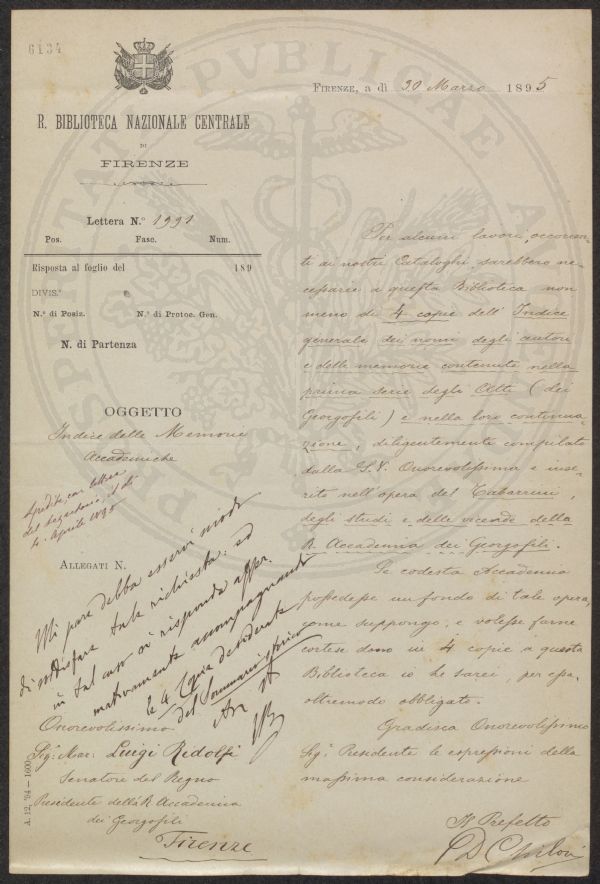 6134
PROSPERITATI PVBLICAE AVGENDAE
FIRENZE, a dì 30 Marzo 1895
R. BIBLIOTECA NAZIONALE CENTRALE
DI
FIRENZE
Lettera N.° 1991
Pos. Fasc. Num.
Risposta al foglio del 189
DIVIS.ᵉ
N.° di Posiz. N.° di Protoc. Gen.
N. di Partenza
OGGETTO
Indice delle Memorie
Accademiche
Spedite con lettera
del Segretario il dì
4. Aprile 1895
ALLEGATI N.
Mi pare debba esservi modo
di sodisfare tale richiesta: ed
in tal caso si risponda affer-
mativamente accompagnando
le 4 Copie desiderate
del Sommario storico
Onorevolissimo
Sig: Mar: Luigi Ridolfi
Senatore del Regno
Presidente della R. Accademia
dei Georgofili
Firenze
A. 12, '94 — 1600.
Per alcuni lavori occoren-
ti ai nostri Cataloghi sarebbero ne-
cessarie a questa Biblioteca non
meno di 4 copie dell'Indice
generale dei nomi degli autori
e delle memorie contenute nella
prima serie degli Atti (dei
Georgofili) e nella loro continua-
zione, diligentemente compilato
dalla S.V. Onorevolissima e inse-
rito nell'opera del Tabarrini,
degli studi e delle vicende della
R. Accademia dei Georgofili.
Se codesta Accademia
possedesse un fondo di tale opera,
come suppongo, e volesse farne
cortese dono in 4 copie a questa
Biblioteca io le sarei, per essa,
oltremodo obbligato.
Gradisca Onorevolissimo
Sig. Presidente le espressioni della
massima considerazione
Il Prefetto
D Chilovi